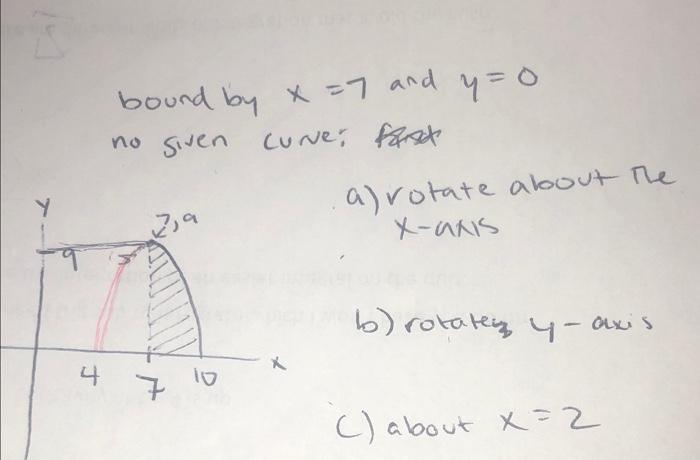 bound by x = 7 and y = 0
no given curve:
a) rotate about the
x-axis
y
7,9
9
b) rotate y-axis
4 7 10 x
c) about x = 2